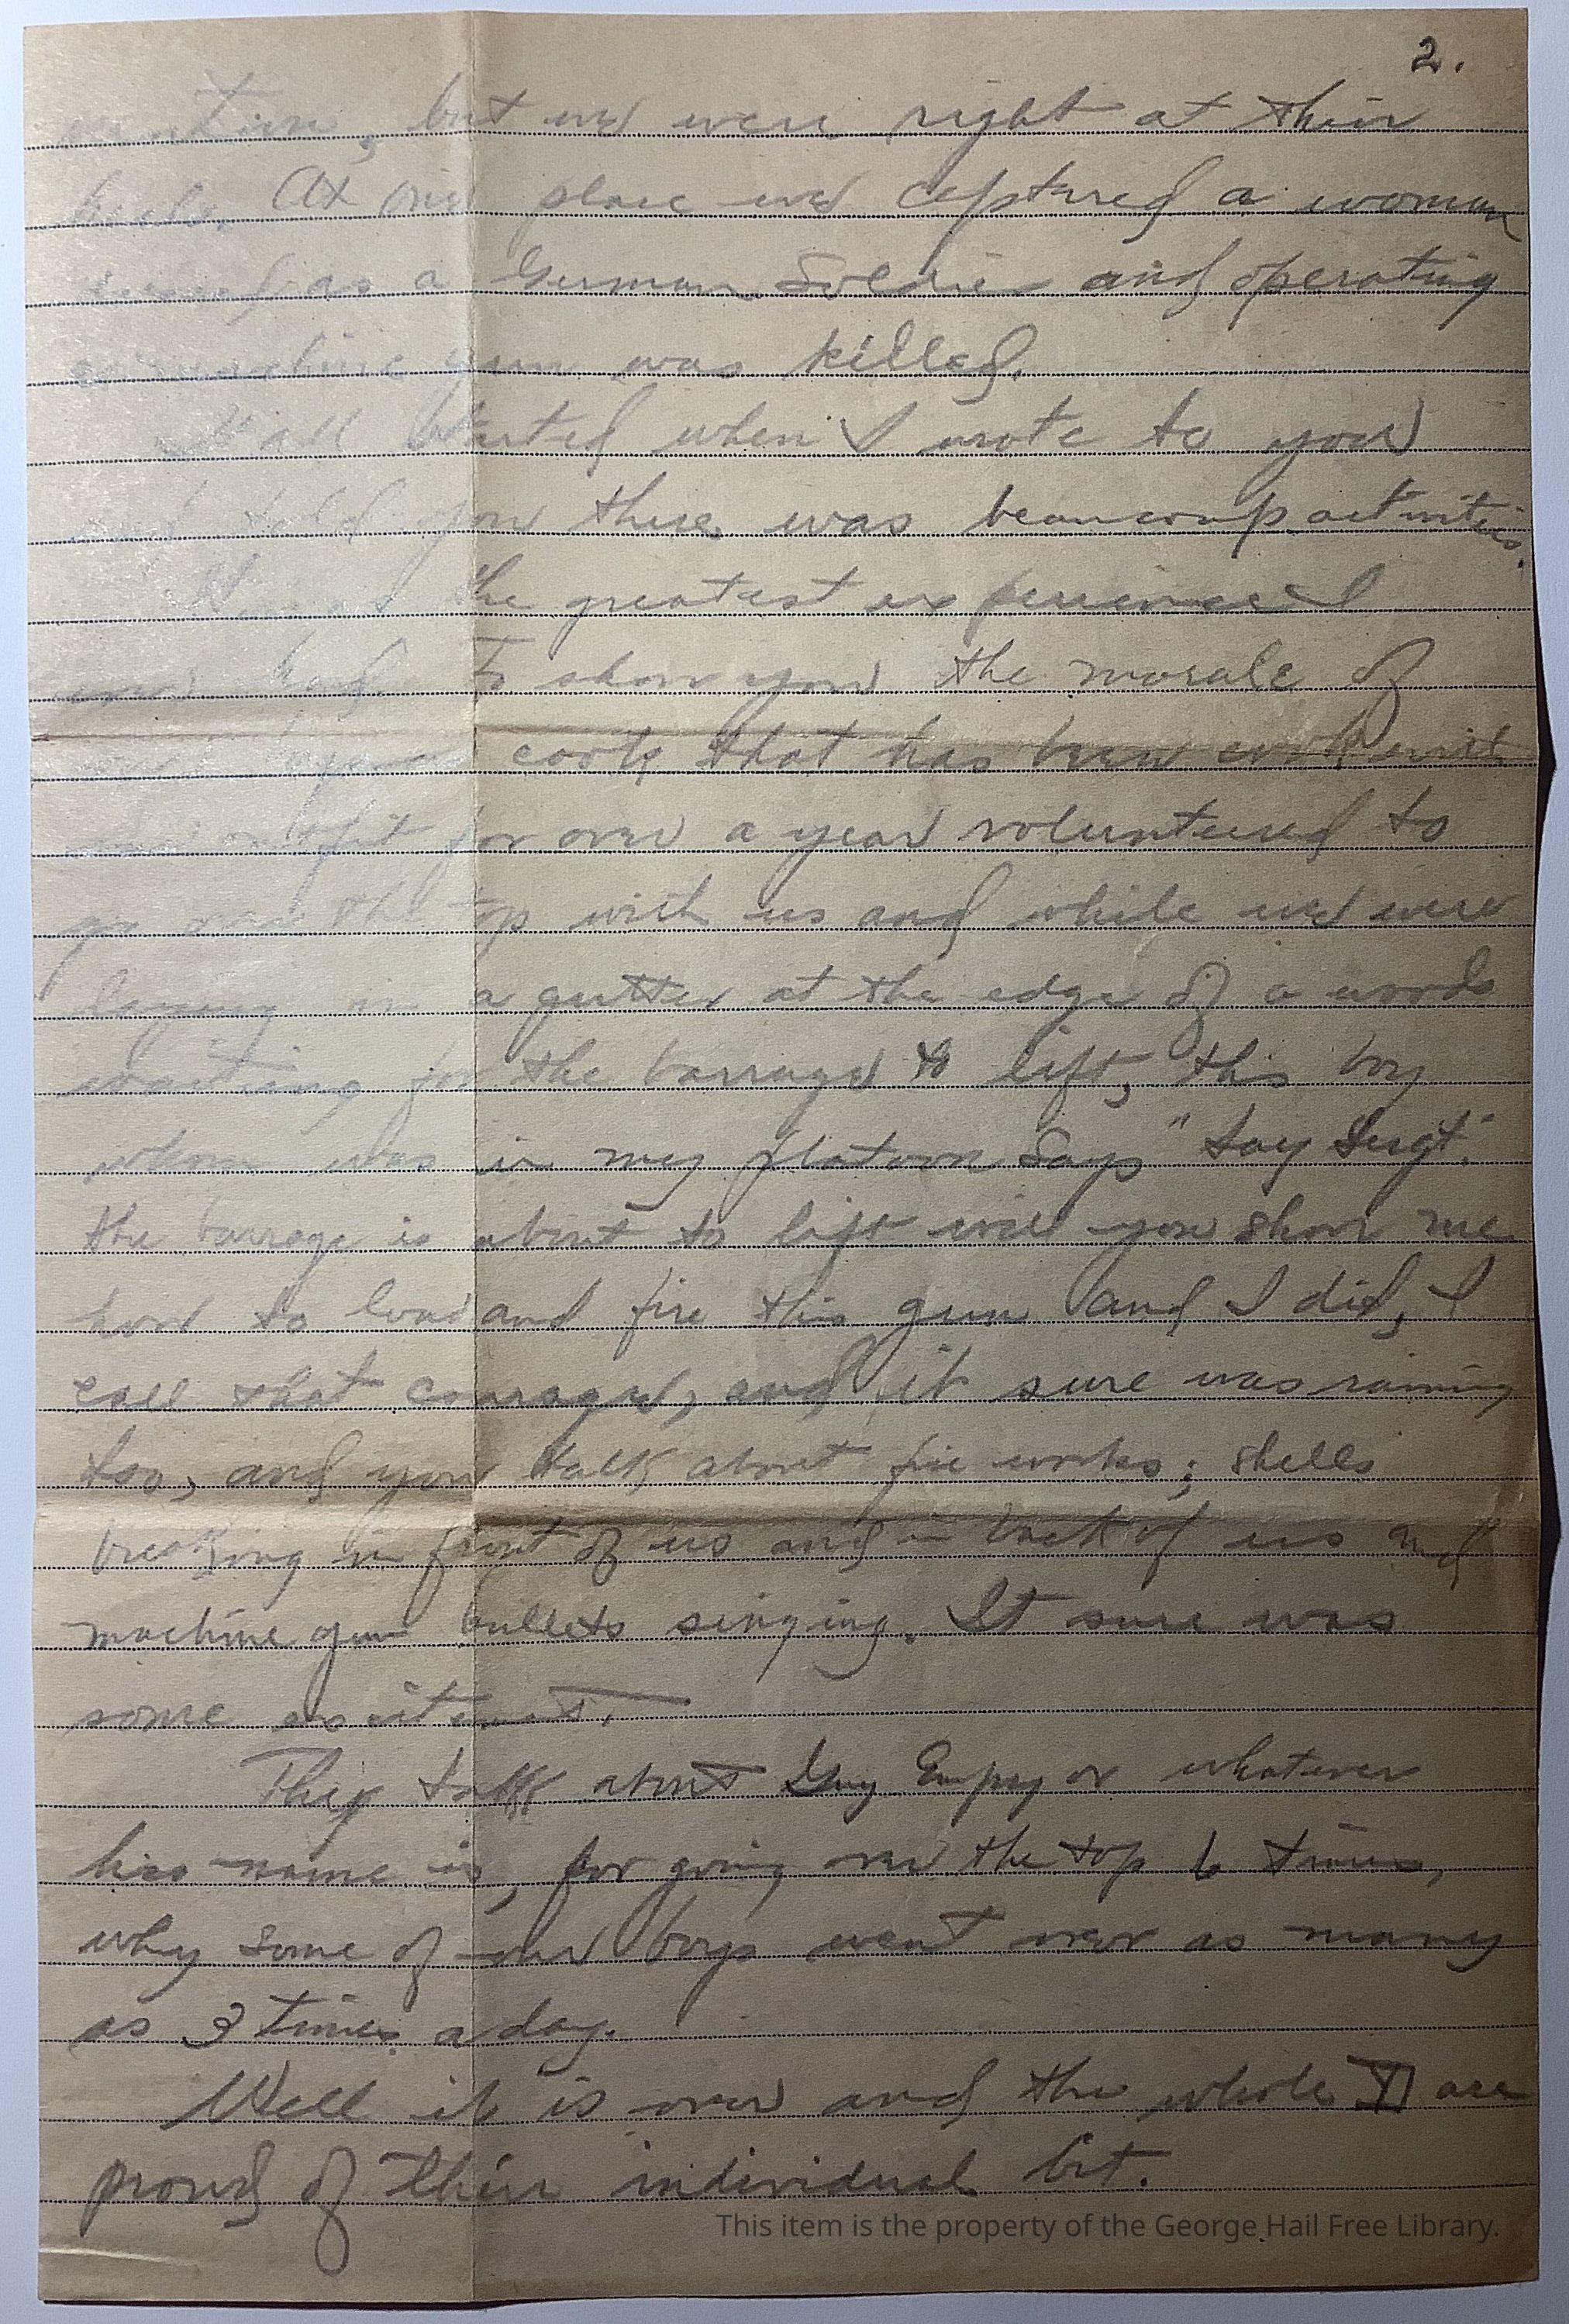 2.
but we were right at their
heels. At one place we captured a woman
dressed as a German Soldier and operating
a machine gun was killed.
It all started when I wrote to you
and told you there was beaucoup activities.
the greatest experience I
ever had. To show you the morale of
cook that has been cook with
our outfit for over a year volunteered to
go over the top with us and while we were
laying in a gutter at the edge of a woods
waiting for the barrage to lift, this boy
whom was in my platoon says "Say Sergt."
the barrage is about to lift will you show me
how to load and fire this gun and I did, I
call that courage, and it sure was raining
too, and you talk about fire works; shells
breaking in front of us and in back of us and
machine gun bullets singing. It sure was
some excitement.
They talk about Guy Empey or whatever
his name is, for going over the top 6 times,
why some of our boys went over as many
as 3 times a day.
Well it is over and the whole are
proud of their individual bit.
This item is the property of the George Hail Free Library.